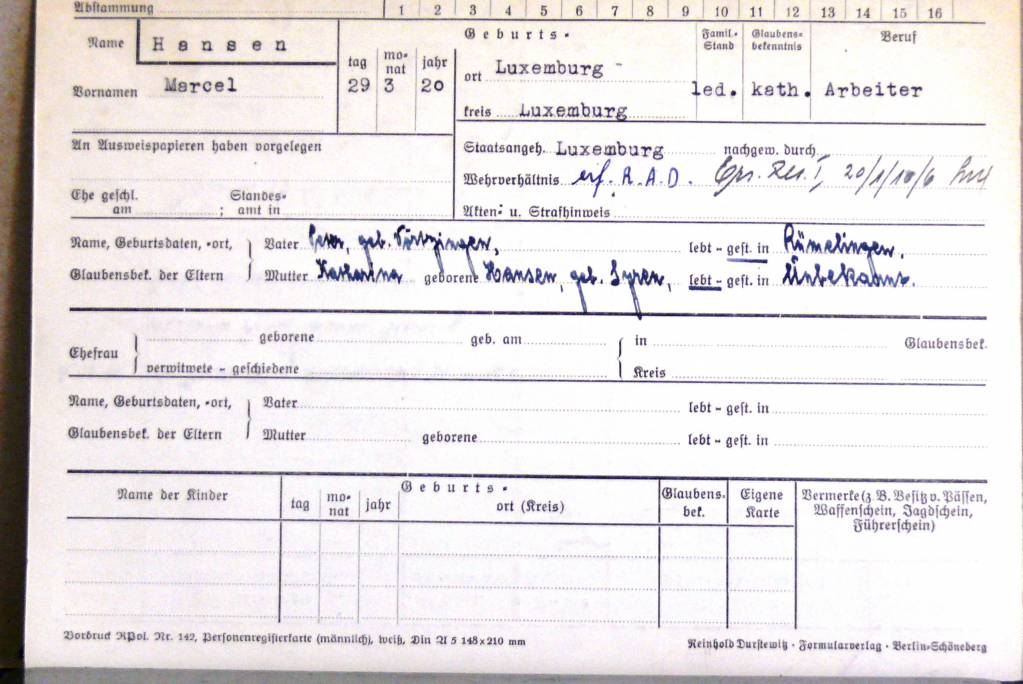 Abstammung 1 2 3 4 5 6 7 8 9 10 11 12 13 14 15 16
Name Hansen
Vornamen Marcel
tag monat jahr
29 3 20
Geburts-
ort Luxemburg -
kreis Luxemburg
Famil.-Stand
led.
Glaubens-bekenntnis
kath.
Beruf
Arbeiter
An Ausweispapieren haben vorgelegen
Staatsangeh. Luxemburg nachgew. durch
Wehrverhältnis erf. R.A.D. Ers. Res. I,
Ehe geschl. Standes-
am ; amt in
Akten- u. Strafhinweis
Name, Geburtsdaten, -ort, Vater Peter, geb. lebt - gest. in Rümelingen.
Glaubensbek. der Eltern Mutter Katharina geborene Hansen, geb. Syren, lebt - gest. in Unbekannt.
Ehefrau geborene geb. am in Glaubensbek.
verwitwete - geschiedene Kreis
Name, Geburtsdaten, -ort, Vater lebt - gest. in
Glaubensbek. der Eltern Mutter geborene lebt - gest. in
Name der Kinder
Geburts-
tag monat jahr ort (Kreis)
Glaubens-bek.
Eigene Karte
Vermerke (z. B. Besitz v. Pässen,
Waffenschein, Jagdschein,
Führerschein)
Vordruck RPol. Nr. 142, Personenregisterkarte (männlich), weiß, Din A 5 148×210 mm
Reinhold Durstewitz · Formularverlag · Berlin-Schöneberg